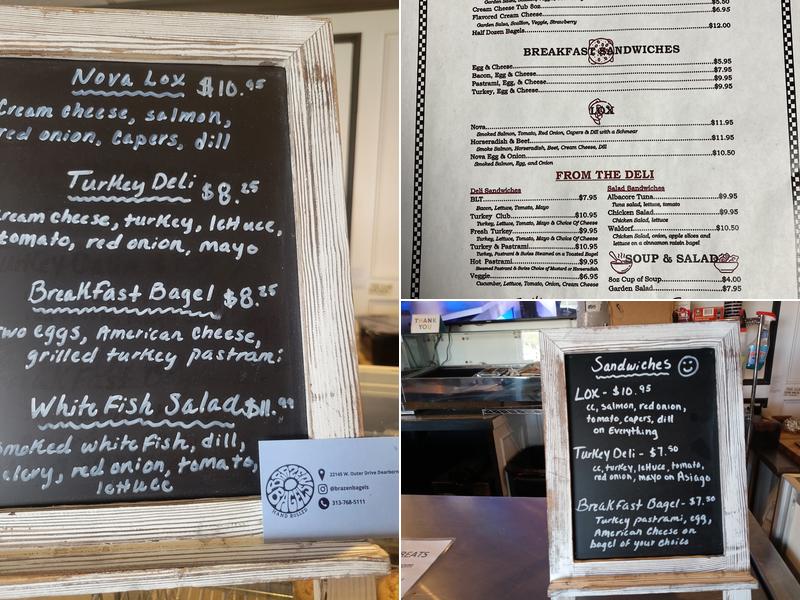 Nova Lox $10.95
Cream cheese, salmon,
red onion, capers, dill
Turkey Deli $8.25
cream cheese, turkey, lettuce,
tomato, red onion, mayo
Breakfast Bagel $8.25
two eggs, American cheese,
grilled turkey pastrami
White Fish Salad $11.99
smoked white fish, dill,
celery, red onion, tomato,
lettuce
BRAZEN BAGELS
HAND ROLLED
22145 W. Outer Drive Dearborn
@brazenbagels
313-768-5111
$5.50
Cream Cheese Tub 8oz
Flavored Cream Cheese $6.95
Garden Salad, Scallion, Veggie, Strawberry
Half Dozen Bagels $12.00
BREAKFAST SANDWICHES
Egg & Cheese $5.95
Bacon, Egg & Cheese $7.95
Pastrami, Egg, & Cheese $9.95
Turkey, Egg & Cheese $9.95
LOX
Nova $11.95
Smoked Salmon, Tomato, Red Onion, Capers & Dill with a Schmear
Horseradish & Beet $11.95
Smoke Salmon, Horseradish, Beet, Cream Cheese, Dill
Nova Egg & Onion $10.50
Smoked Salmon, Egg, and Onion
FROM THE DELI
Deli Sandwiches
BLT $7.95
Bacon, Lettuce, Tomato, Mayo
Turkey Club $10.95
Turkey, Lettuce, Tomato, Mayo & Choice Of Cheese
Fresh Turkey $9.95
Turkey, Lettuce, Tomato, Mayo & Choice Of Cheese
Turkey & Pastrami $10.95
Turkey, Pastrami & Swiss Steamed on a Toasted Bagel
Hot Pastrami $9.95
Steamed Pastrami & Swiss Choice of Mustard or Horseradish
Veggie $6.95
Cucumber, Lettuce, Tomato, Onion, Cream Cheese
Salad Sandwiches
Albacore Tuna $9.95
Tuna salad, lettuce, tomato
Chicken Salad $9.95
Chicken Salad, lettuce
Waldorf $10.50
Chicken Salad, onion, apple slices and
lettuce on a cinnamon raisin bagel
SOUP & SALAD
8oz Cup of Soup $4.00
Garden Salad $7.95
THANK
YOU
Sandwiches
LOX - $10.95
cc, salmon, red onion,
tomato, capers, dill
on Everything
Turkey Deli - $7.50
cc, turkey, lettuce, tomato,
red onion, mayo on Asiago
Breakfast Bagel - $7.50
Turkey pastrami, egg,
American Cheese on
bagel of your choice